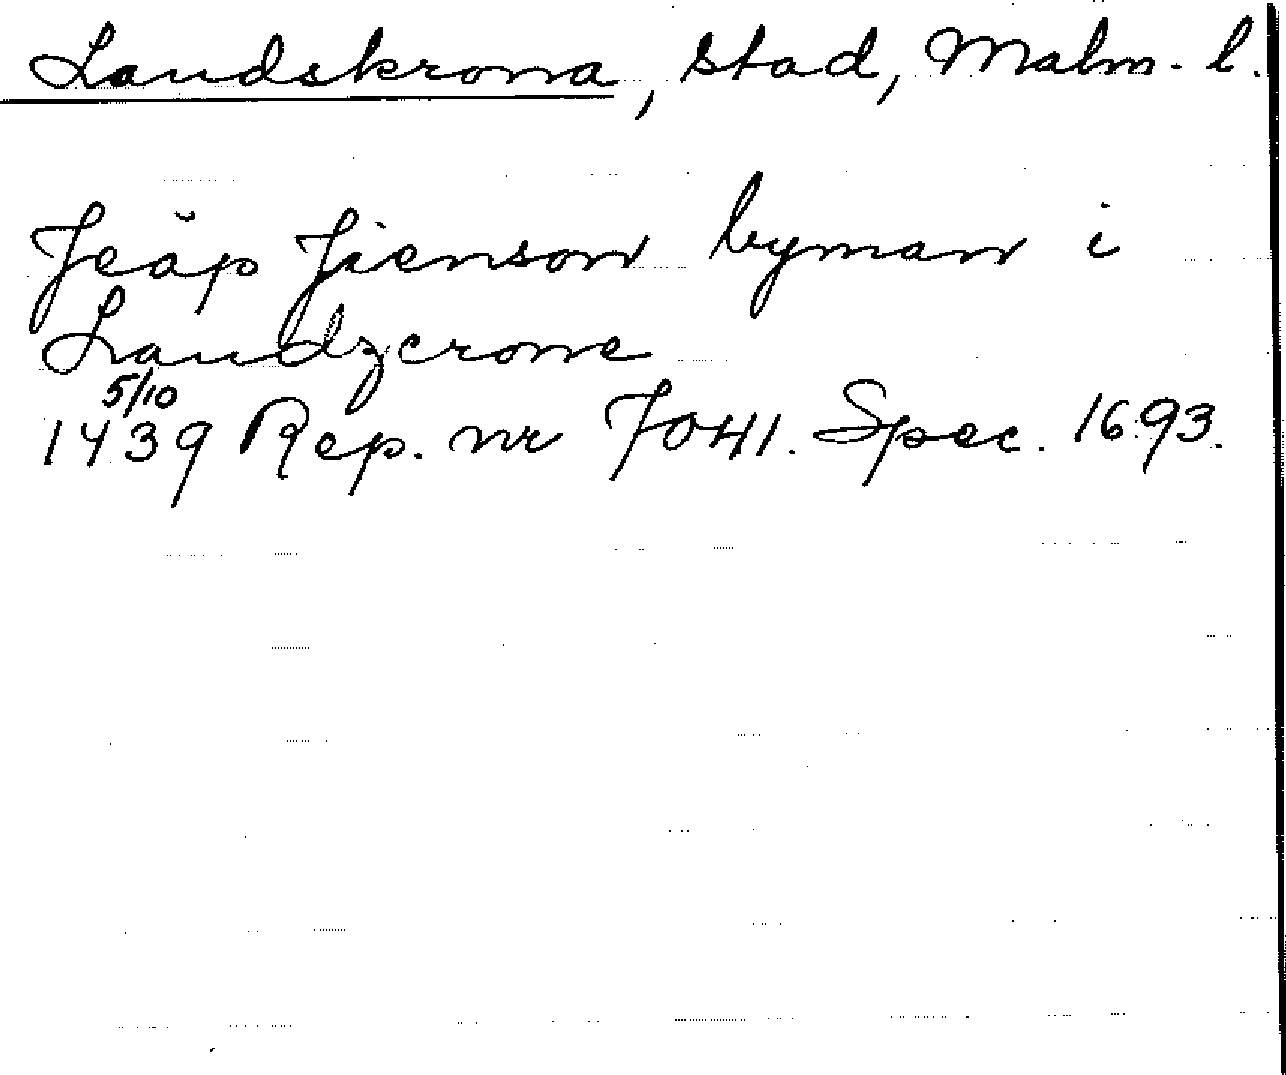 Landskrona, stad, Malm. l.
Jeăp Jienson byman i
Landzcrone
5/10
1439 Rep. nr 7041. Spec. 1693.